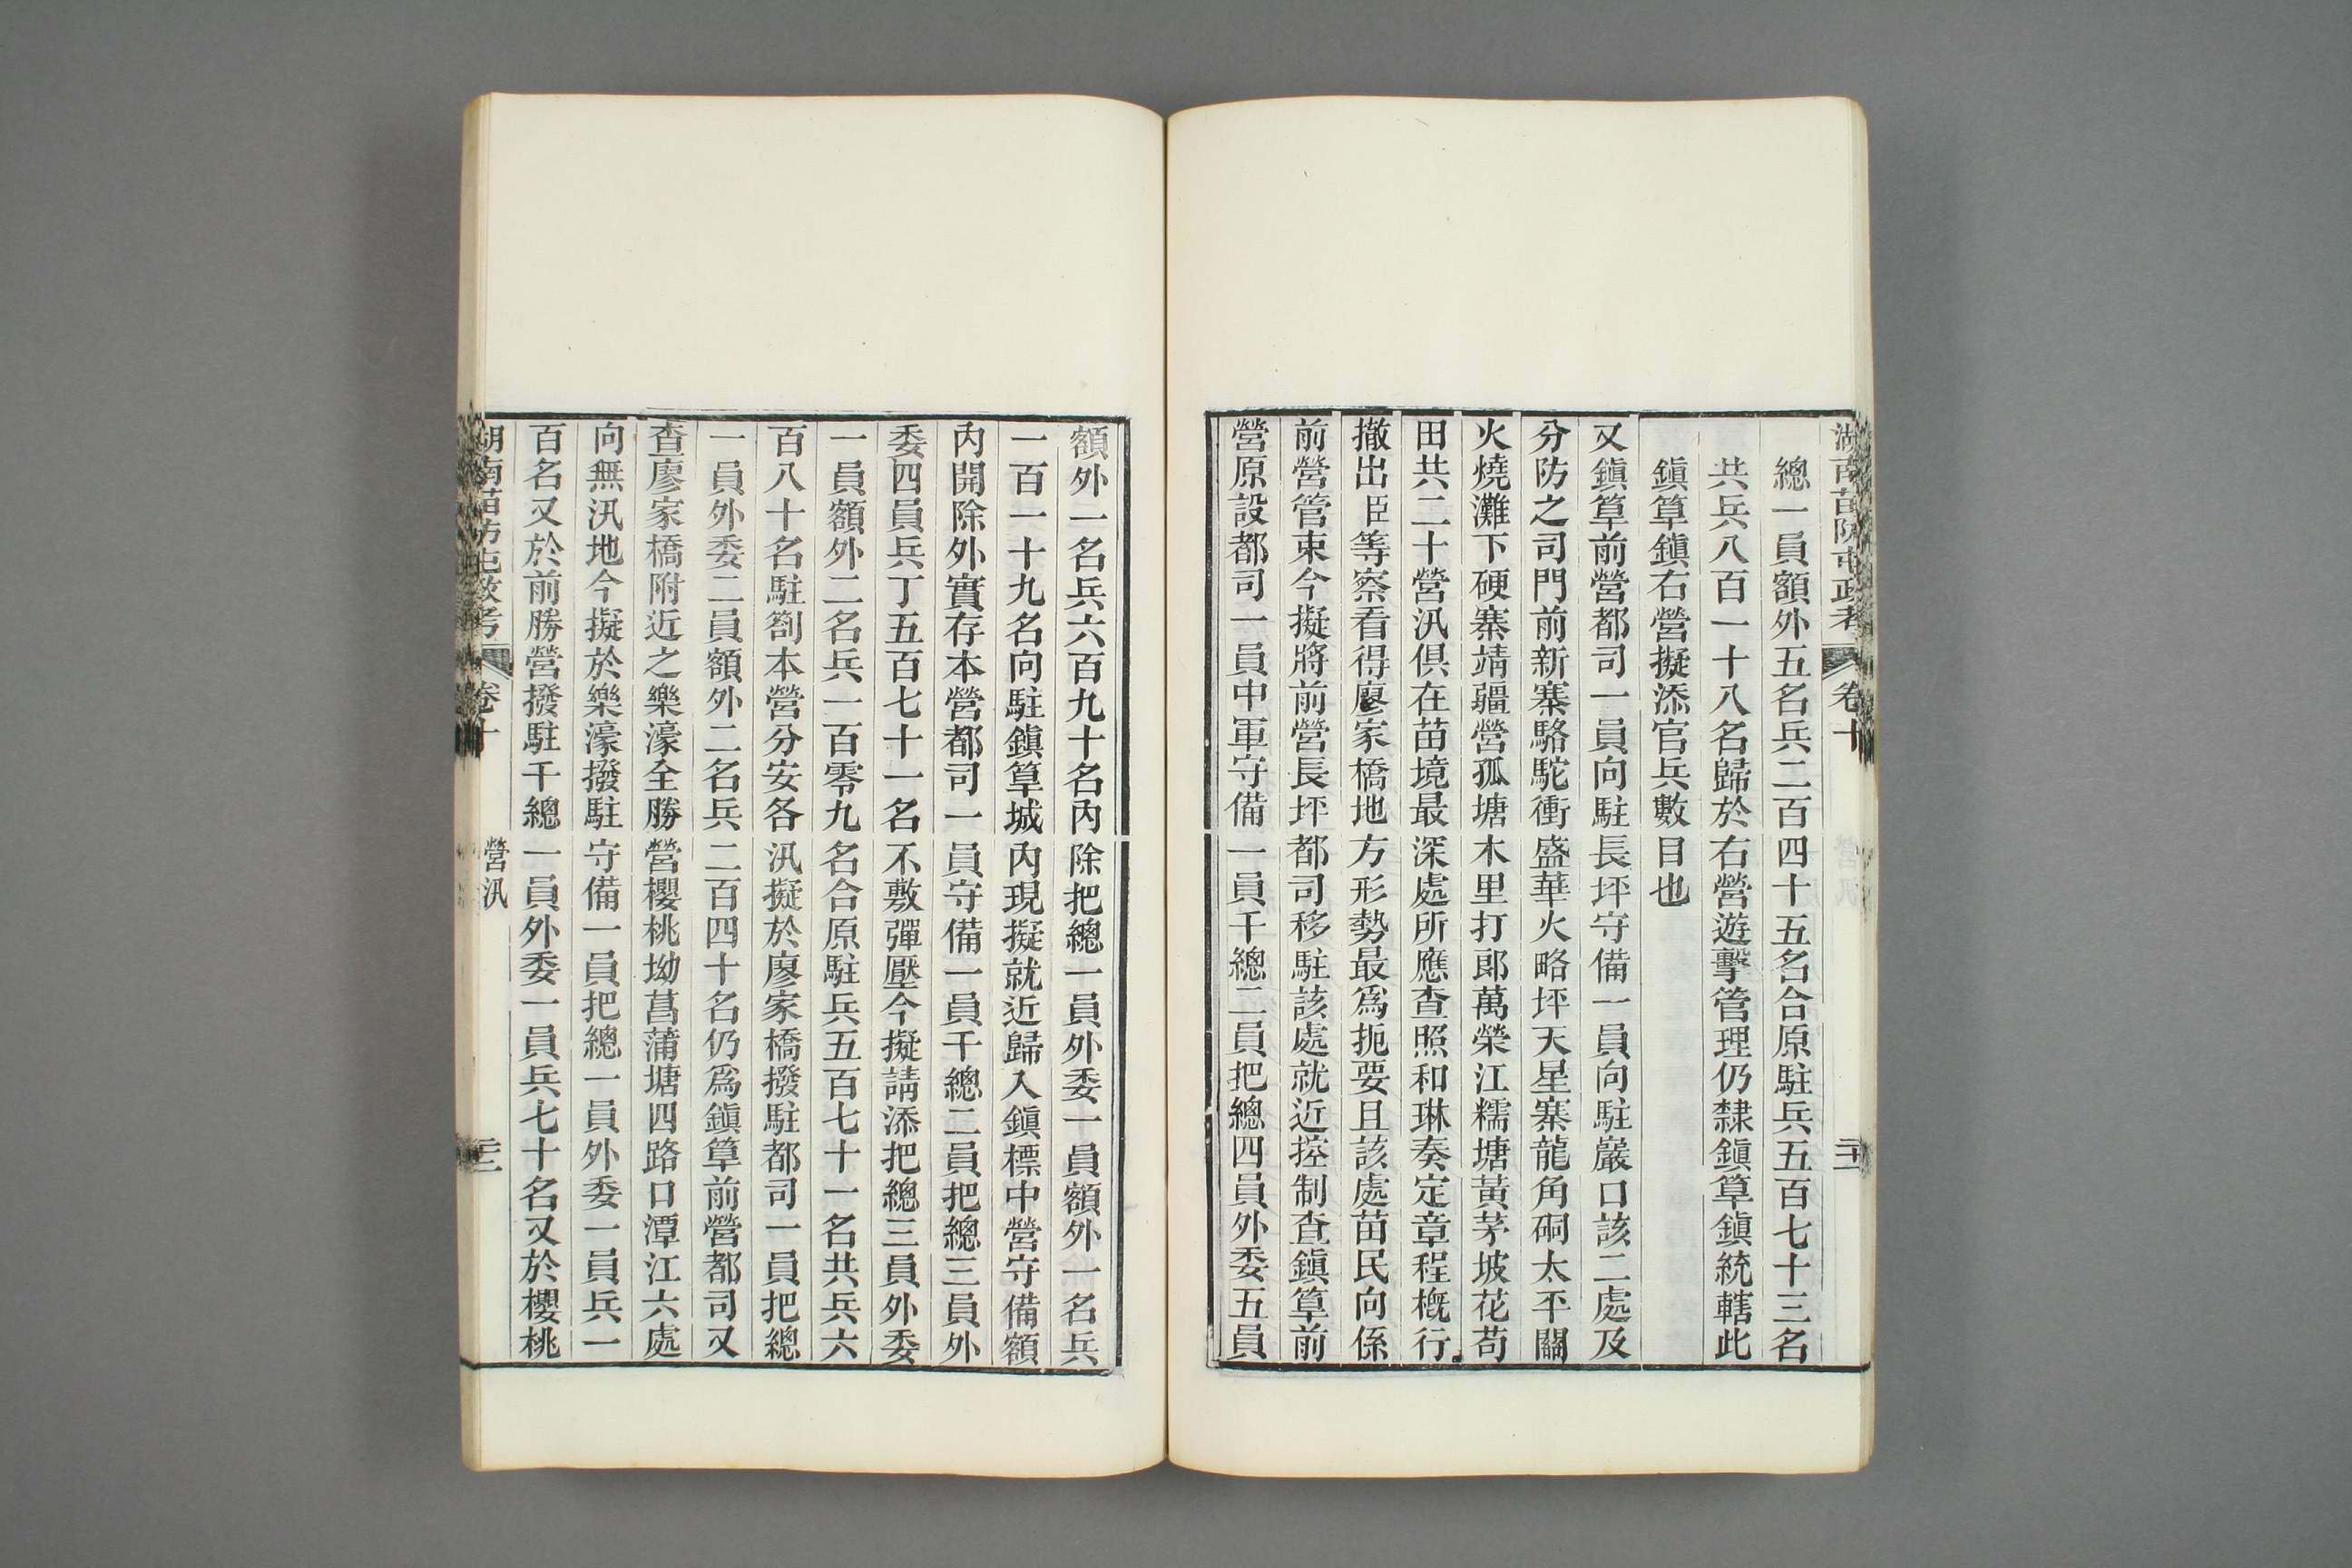 湖南苗防屯政考 卷十
總一員額外五名兵二百四十五名合原駐兵五百七十三名
共兵八百一十八名歸於右營遊擊管理仍隸鎭筸鎭統轄此
鎭筸鎭右營擬添官兵數目也
又鎭筸前營都司一員向駐長坪守備一員向駐巖口該二處及
分防之司門前新寨駱駝衝盛華火略坪天星寨龍角硐太平關
火燒灘下硬寨靖疆營孤塘木里打郞萬榮江糯塘黃茅坡花苟
田共二十營汛俱在苗境最深處所應查照和琳奏定章程槪行
撤出臣等察看得廖家橋地方形勢最爲扼要且該處苗民向係
前營管束今擬將前營長坪都司移駐該處就近控制查鎭筸前
營原設都司一員中軍守備一員千總二員把總四員外委五員
額外一名兵六百九十名內除把總一員外委一員額外一名兵
一百一十九名向駐鎭筸城內現擬就近歸入鎭標中營守備額
內開除外實存本營都司一員守備一員千總二員把總三員外
委四員兵丁五百七十一名不敷彈壓今擬請添把總三員外委
一員額外二名兵一百零九名合原駐兵五百七十一名共兵六
百八十名駐劄本營分安各汛擬於廖家橋撥駐都司一員把總
一員外委二員額外二名兵二百四十名仍爲鎭筸前營都司又
查廖家橋附近之樂濠全勝營櫻桃坳菖蒲塘四路口潭江六處
向無汛地今擬於樂濠撥駐守備一員把總一員外委一員兵一
百名又於前勝營撥駐千總一員外委一員兵七十名又於櫻桃
湖南苗防屯政考 卷十 營汛